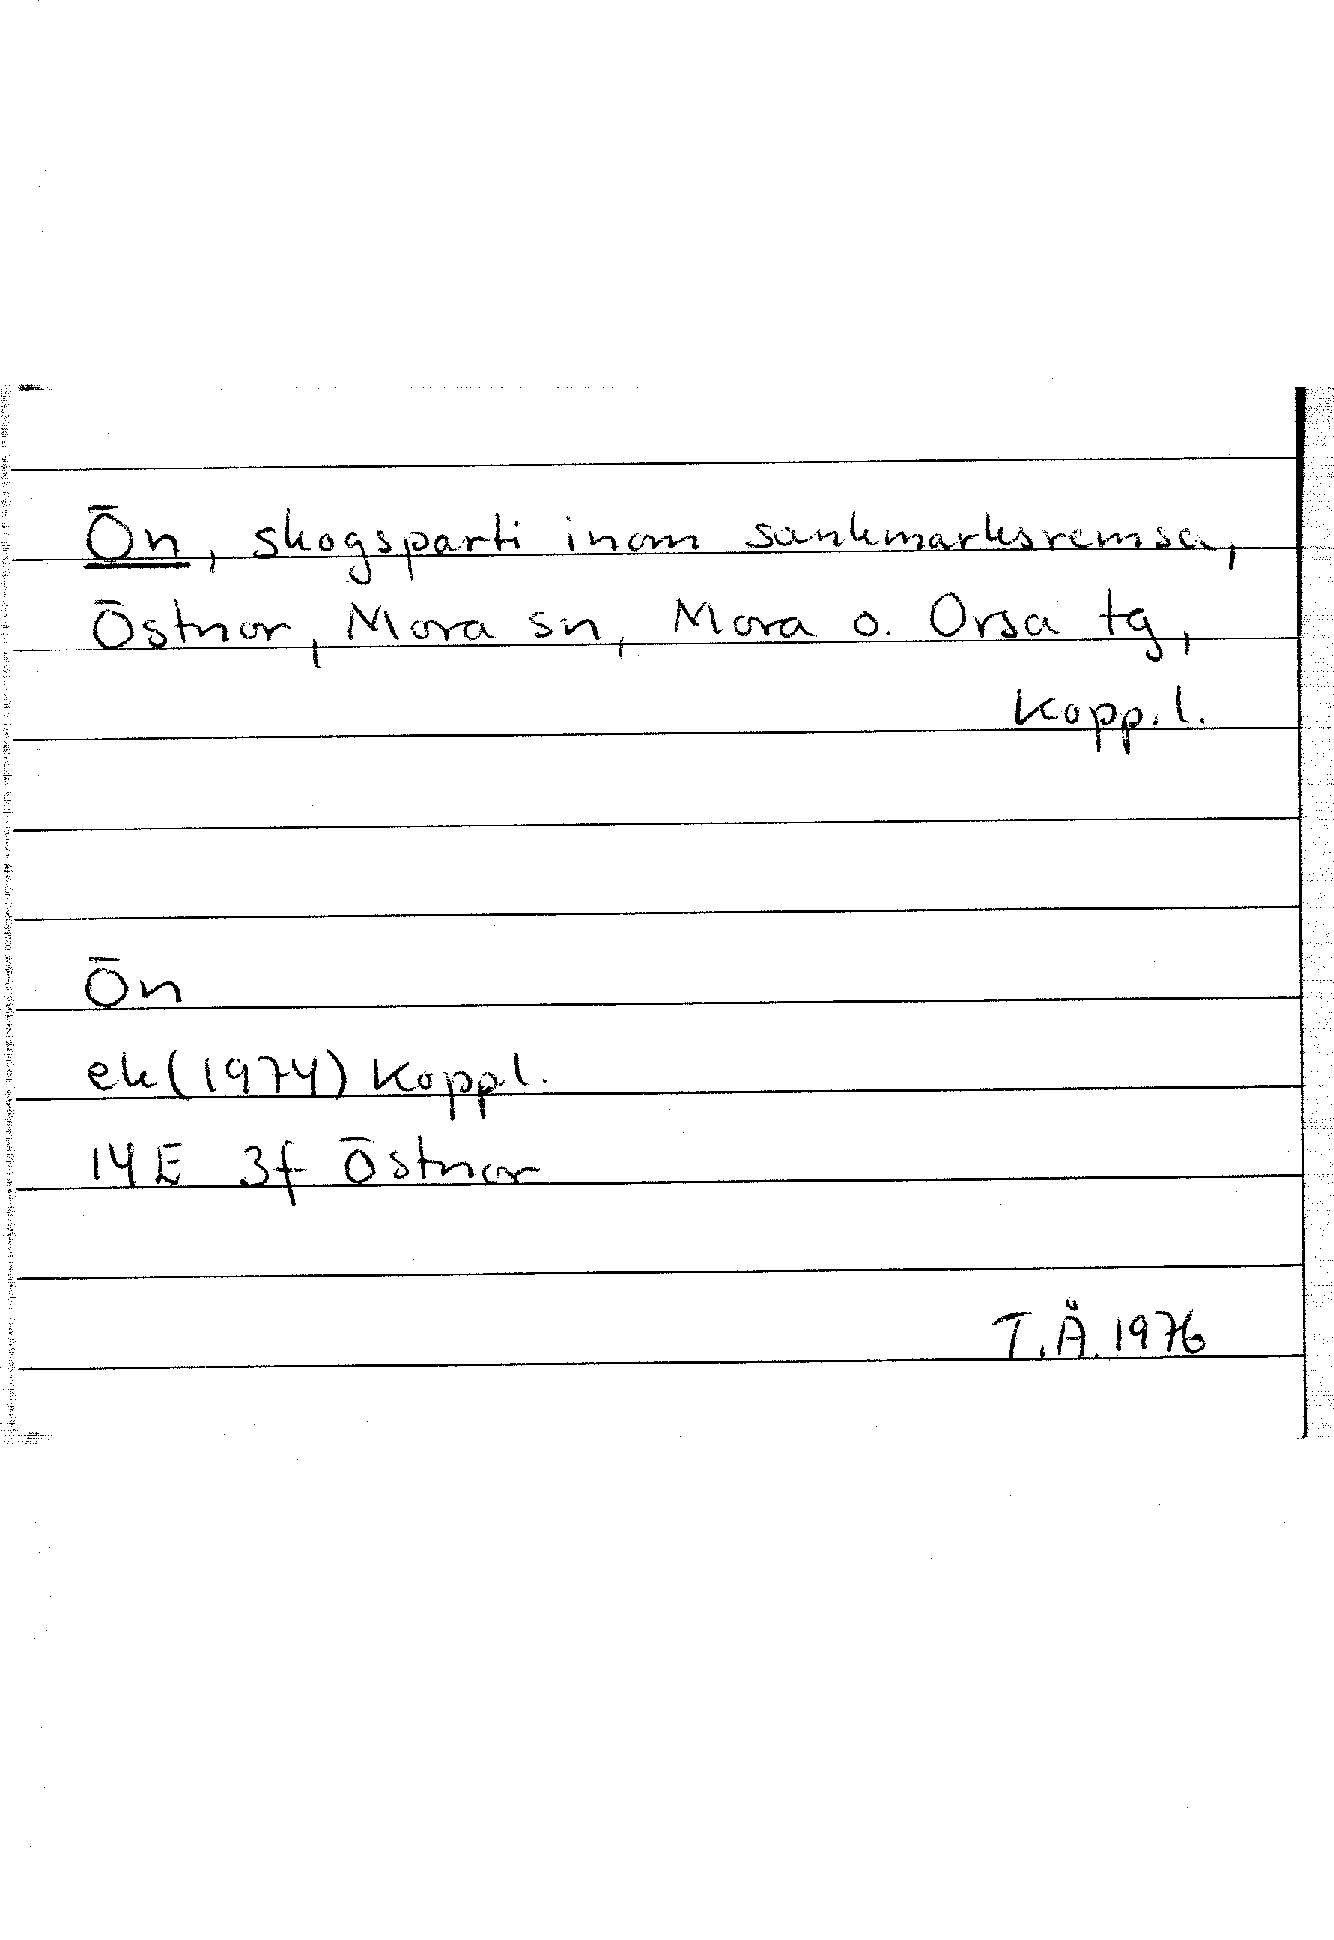 Ön, skogsparti inom sankmarksremsa,
Östnor, Mora sn, Mora o. Orsa tg,
Kopp. l.
Ön
ek (1974) Koppl.
14E 3f Östnor
T.Ä. 1976